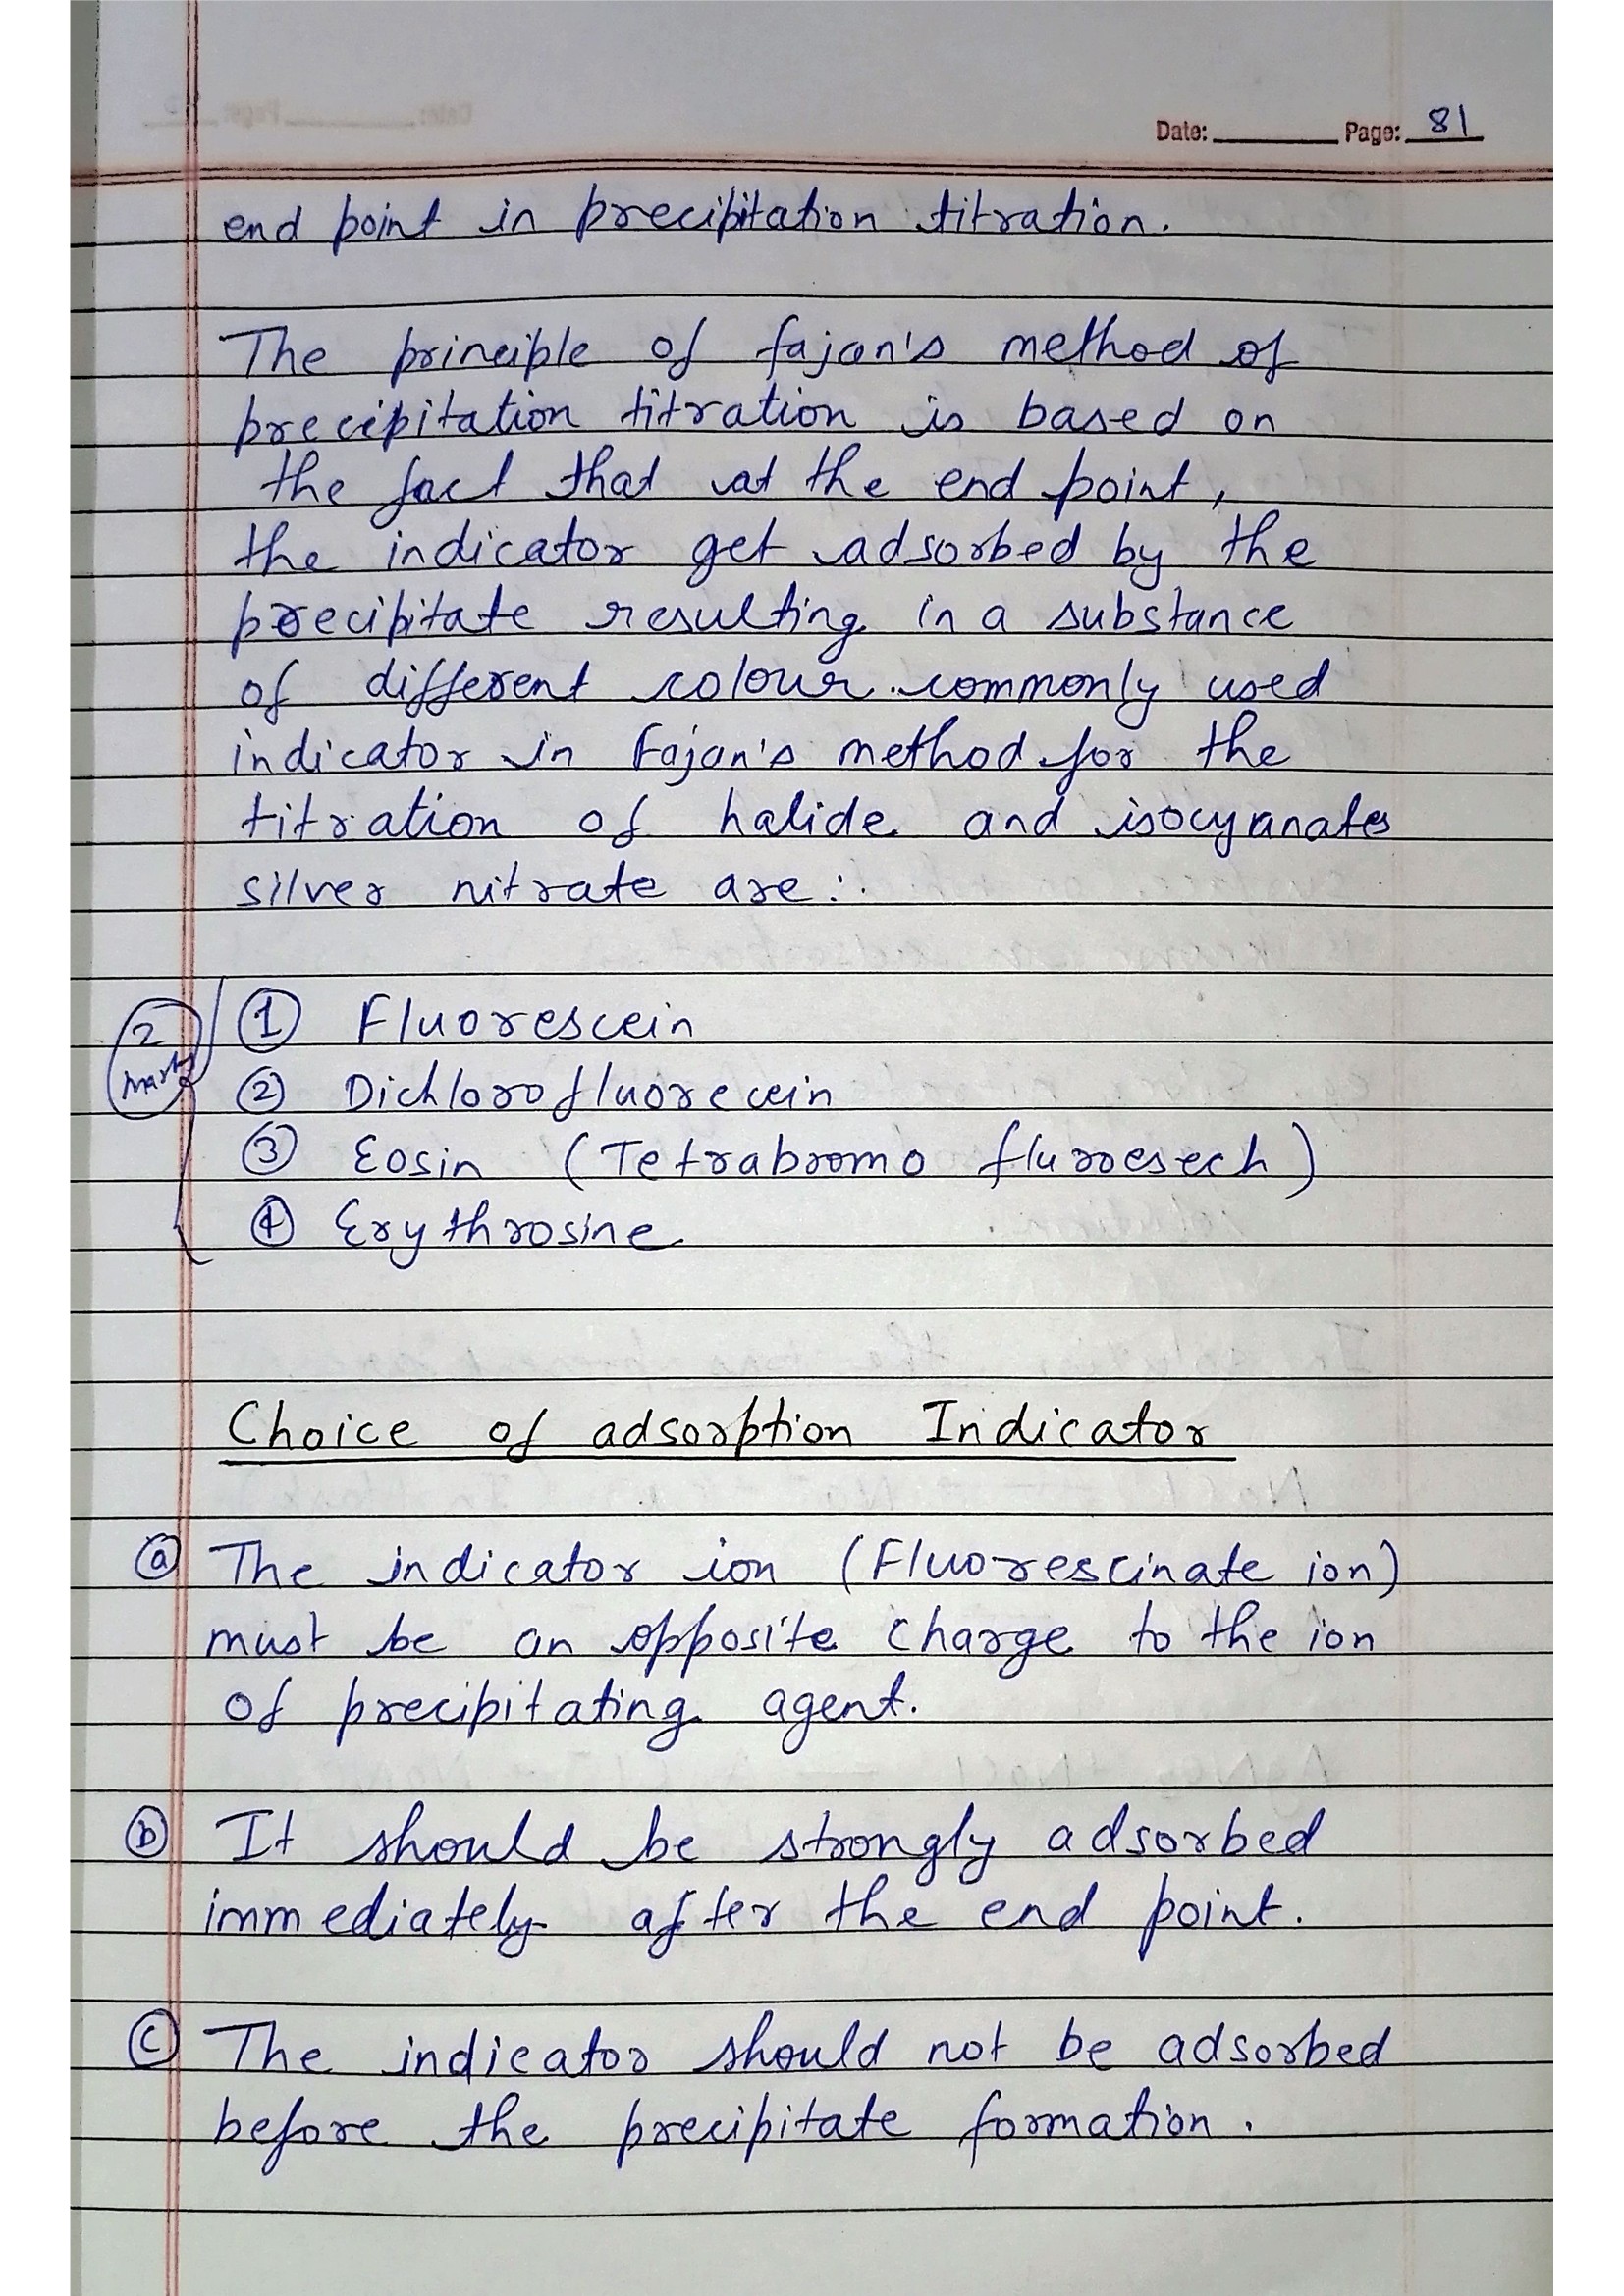 Date: Page: 81
end point in precipitation titration.
The principle of fajan's method of
precipitation titration is based on
the fact that at the end point,
the indicator get adsorbed by the
precipitate resulting in a substance
of different colour. commonly used
indicator in Fajan's method for the
titration of halide and isocyanates
silver nitrate are :.
2 mark
① Fluorescein
② Dichlorofluorecein
③ Eosin (Tetrabromo flurroesech)
④ Erythrosine
Choice of adsorption Indicator
ⓐ The indicator ion (Fluorescinate ion)
must be an opposite charge to the ion
of precipitating agent.
ⓑ It should be strongly adsorbed
immediately after the end point.
ⓒ The indicator should not be adsorbed
before the precipitate formation.